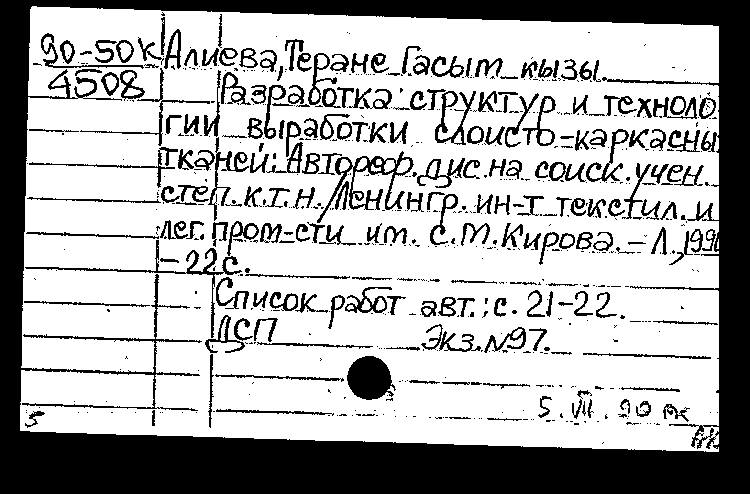 90-50к Алиева, Теране Гасым кызы.
4508 Разработка структур и техноло
гии выработки слоисто-каркасны
тканей: Автореф. дис. на соиск. учен.
степ. к.т.н. /Ленингр. ин-т текстил. и
лег. пром-сти им. С.М. Кирова. - Л., 1990
- 22 с.
Список работ авт.: с. 21-22.
ДСП Экз. №97.
5. VII. 90
5